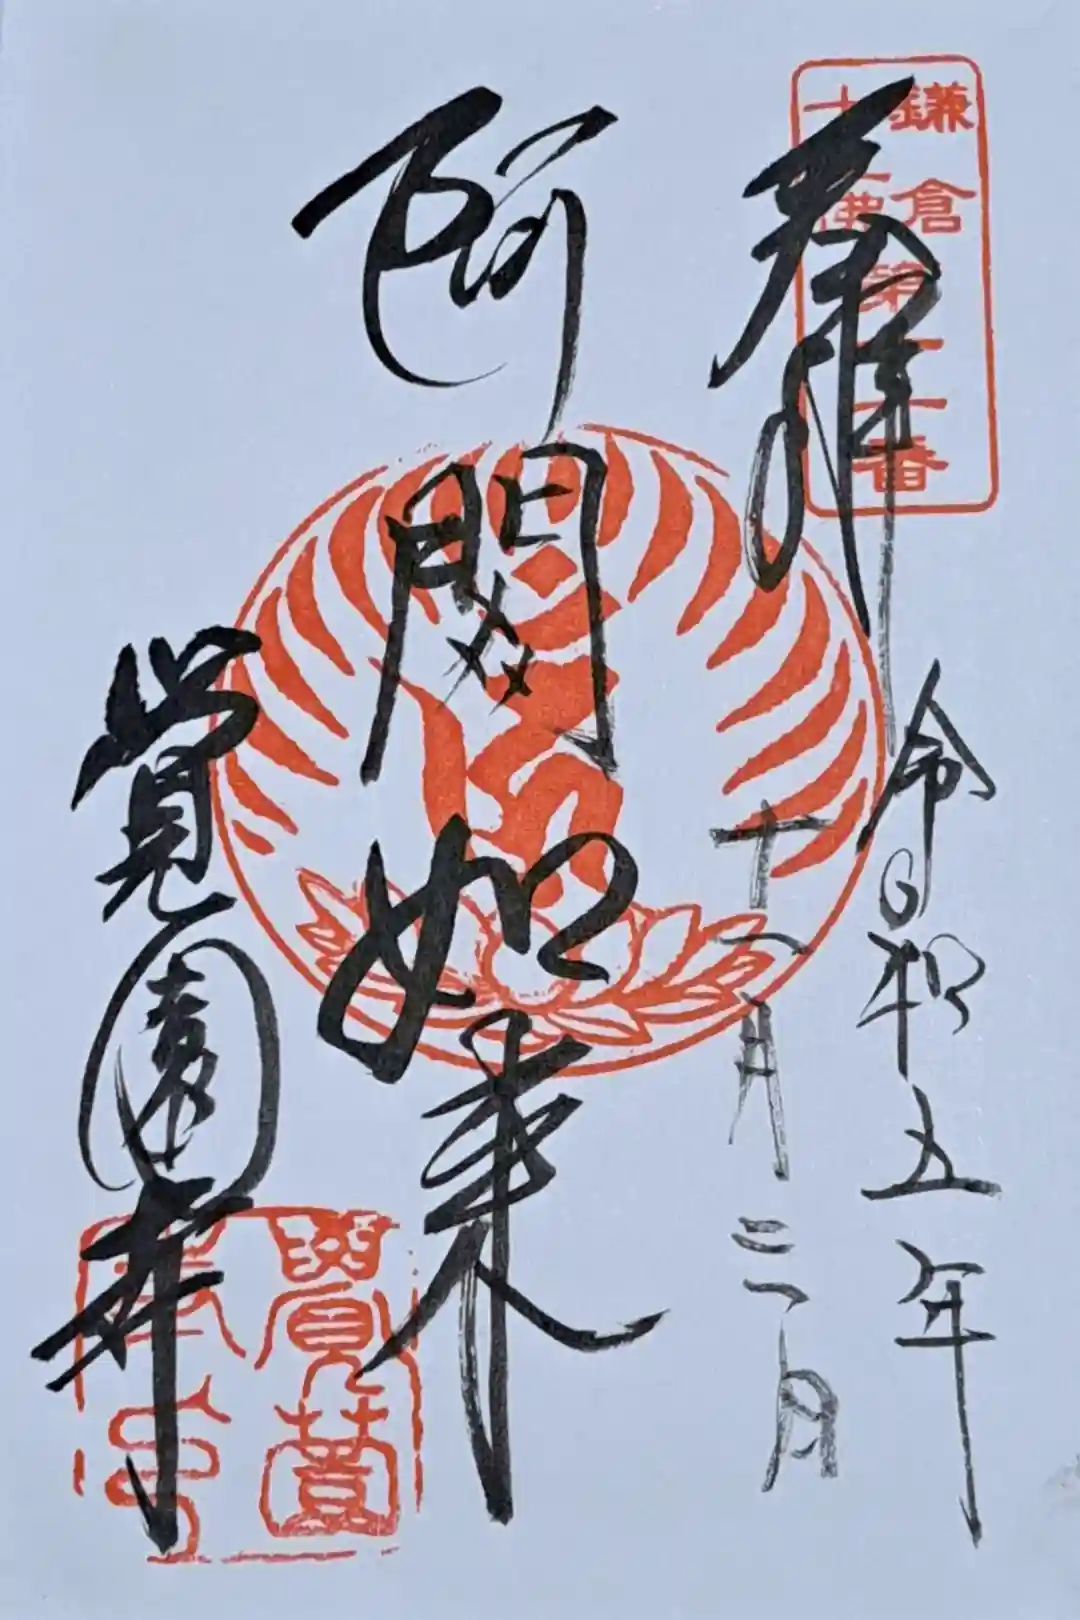 鎌倉
十三佛第十一番
奉拝
令和五年
十一月三日
阿閦如来
覚園寺
覺薗
寺印